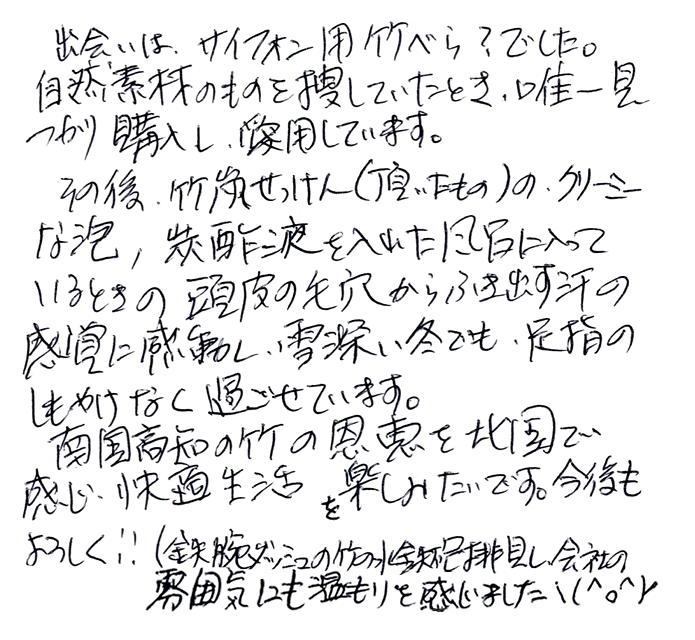 出会いは、サイフォン用竹べら?でした。
自然素材のものを捜していたとき、唯一見
つかり購入し、愛用しています。
その後、竹炭せっけん(頂いたもの)の、クリーミー
な泡、炭酢液を入れた風呂に入って
いるときの頭皮の毛穴からふき出す汗の
感覚に感動し、雪深い冬でも、足指の
しもやけなく過ごせています。
南国高知の竹の恩恵を北国で
感じ、快適生活を楽しみたいです。今後も
よろしく!! (鉄腕ダッシュの竹の水鉄砲拝見し、会社の
雰囲気にも温もりを感じました\(^o^)/